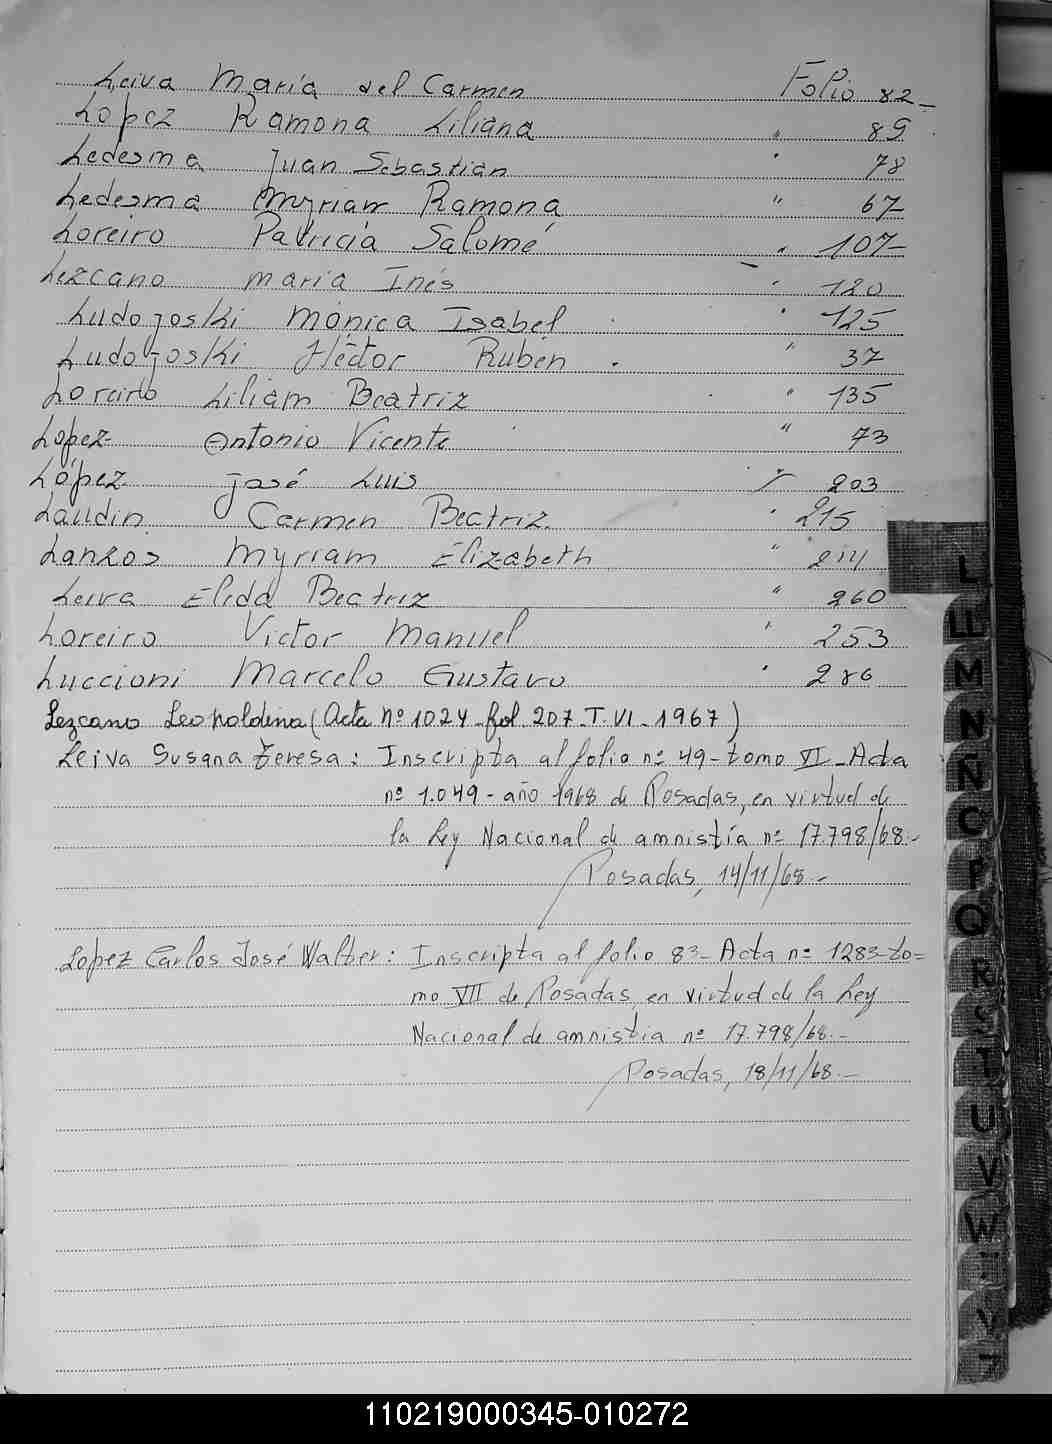 Leiva María del Carmen Folio 82
López Ramona Liliana " 89
Ledesma Juan Sebastián " 78
Ledesma Myriam Ramona " 67
Loreiro Patricia Salomé " 107
Lezcano María Inés " 120
Ludojoski Mónica Isabel " 125
Ludojoski Héctor Rubén . " 37
Loreiro Liliam Beatriz " 135
Lopez Antonio Vicente " 73
López José Luis " 203
Laudin Carmen Beatriz " 215
Myriam Elizabeth "
Leiva Elida Beatriz " 260
Loreiro Victor Manuel " 253
Luccioni Marcelo Gustavo " 286
Lezcano Leopoldina (Acta nº 1024 - fol. 207. T. VI - 1967)
Leiva Susana Teresa: Inscripta al folio nº 49 - tomo VI - Acta
nº 1.049 - año 1968 de Posadas, en virtud de
la Ley Nacional de amnistía nº 17.798/68.-
Posadas, 14/11/68.-
Lopez Carlos José Walter: Inscripta al folio 83 - Acta nº 1283 - to=
mo VII de Posadas, en virtud de la Ley
Nacional de amnistia nº 17.798/68.-
Posadas, 18/11/68.-
L
LL
M
N
Ñ
O
P
Q
R
S
T
U
V
W
110219000345-010272